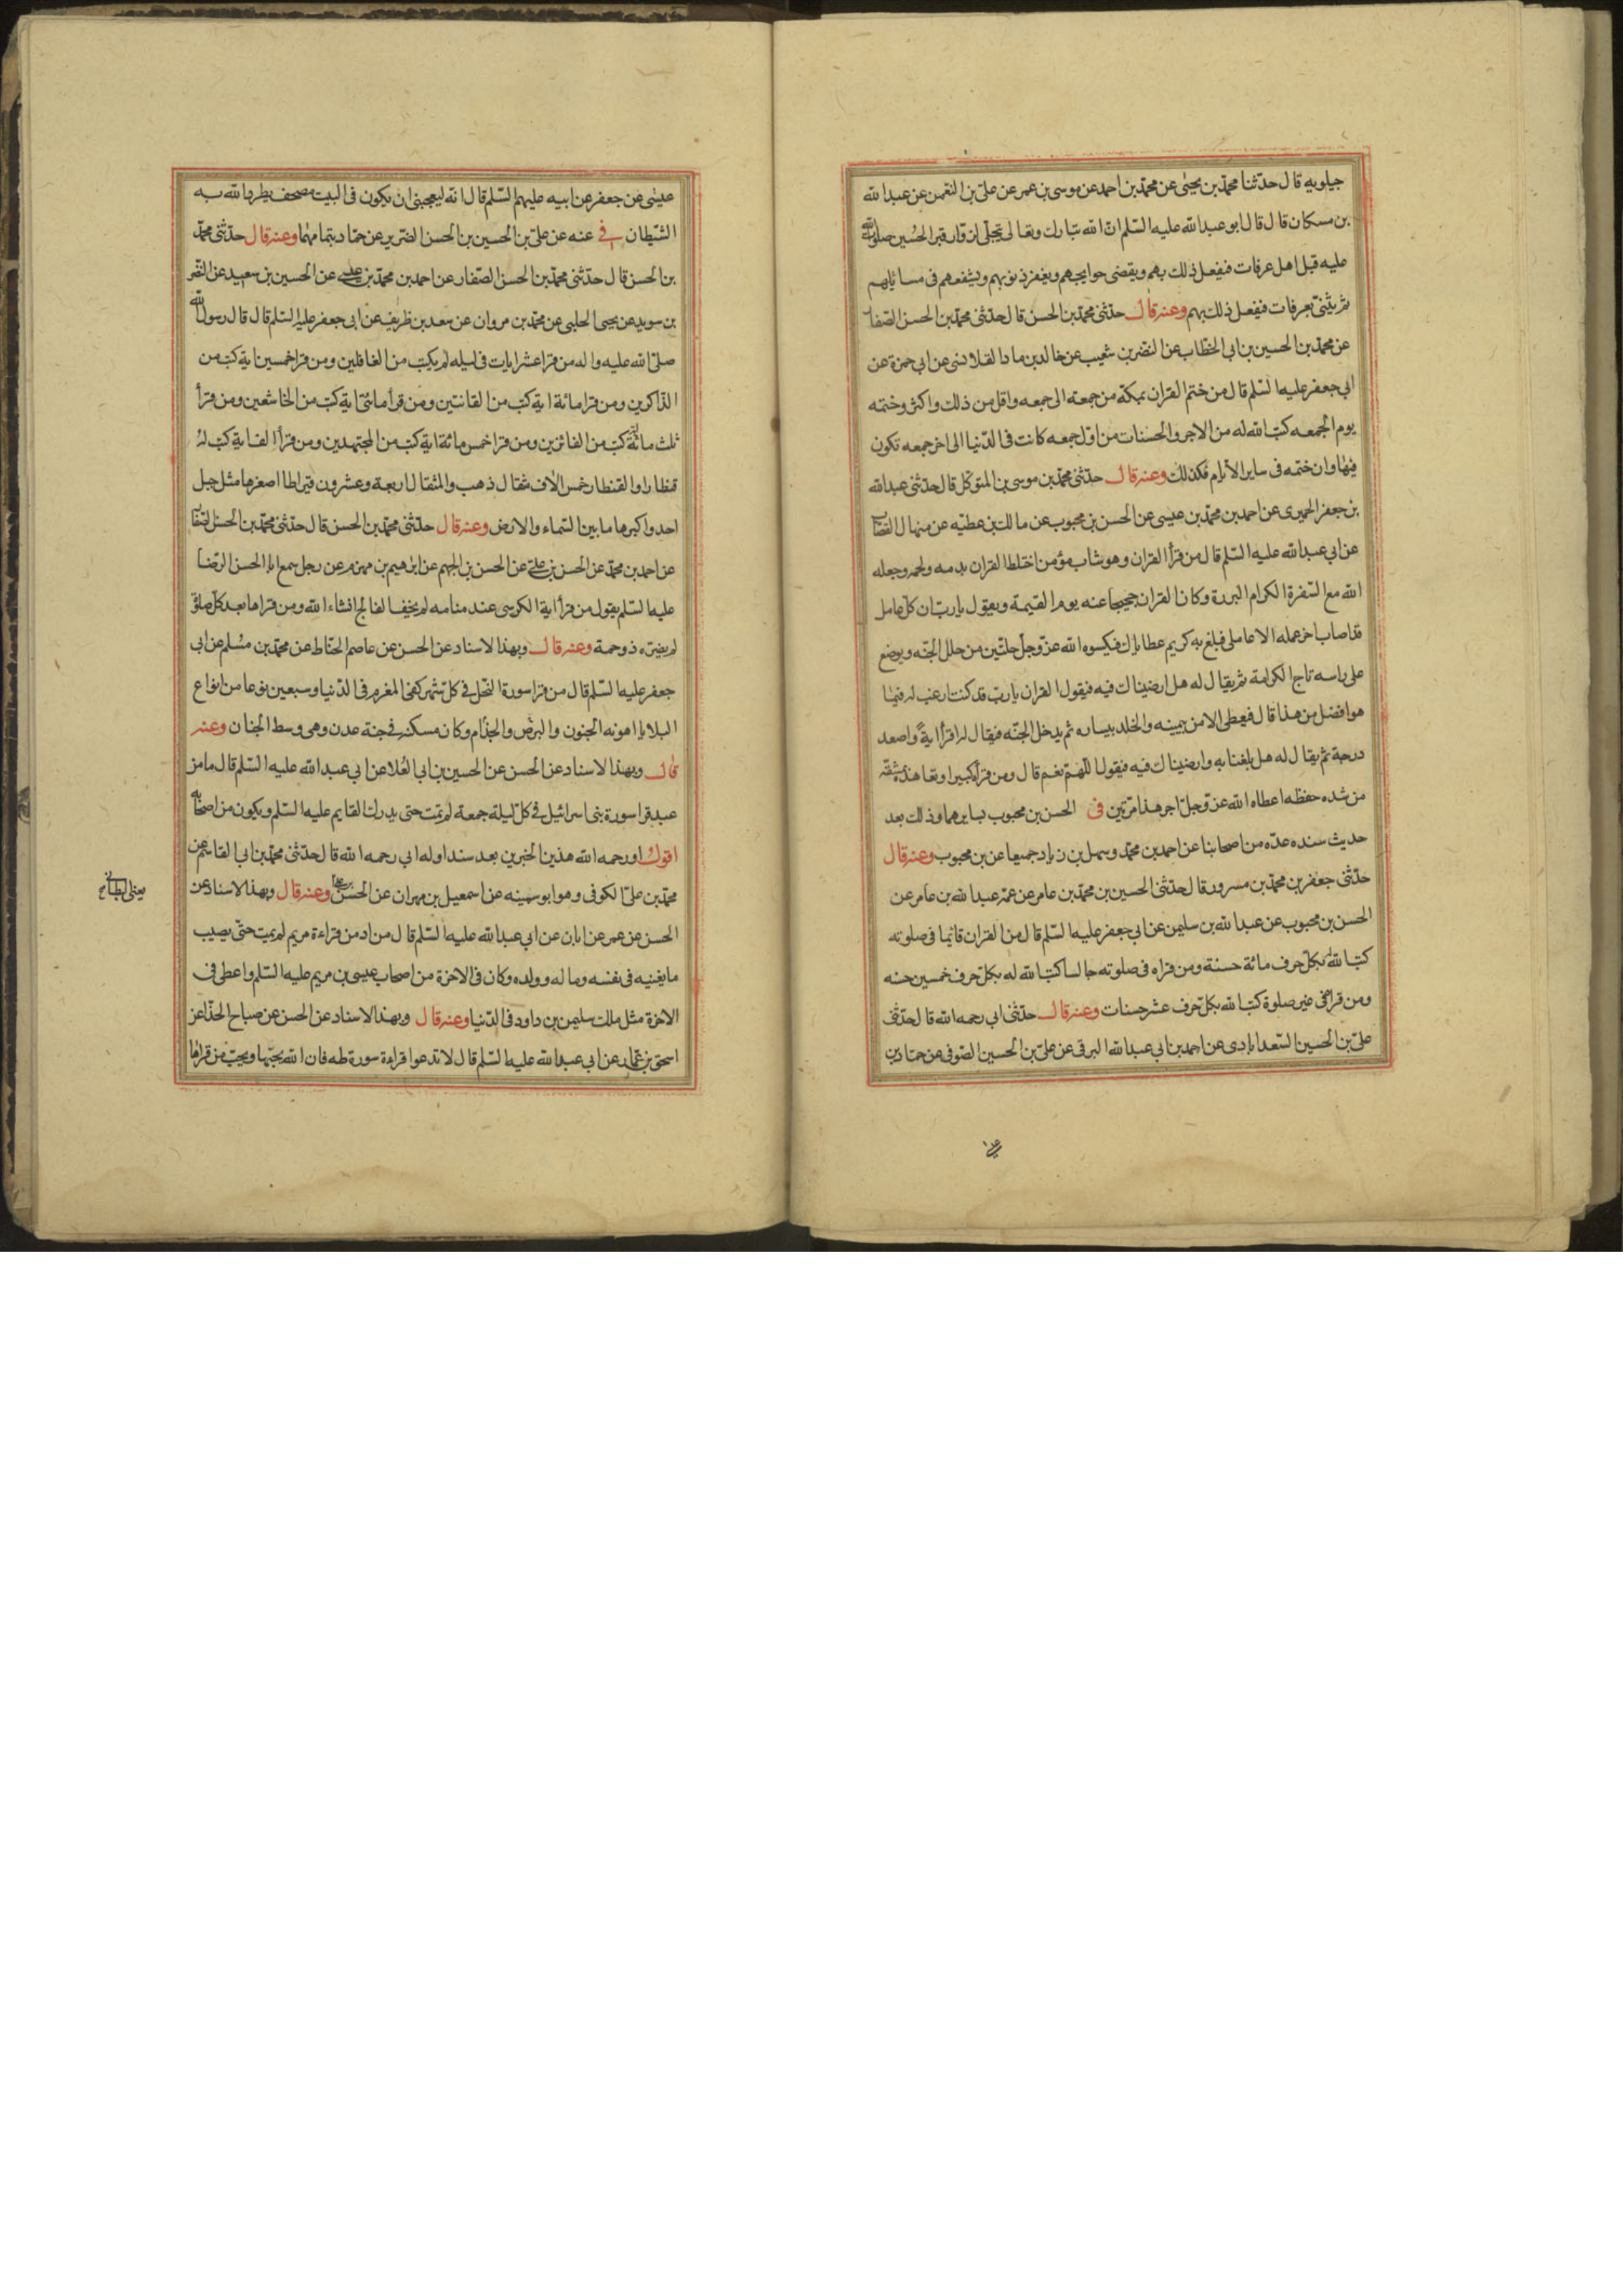 جيلويه قال حدثنا محمد بن يحيى عن محمد بن احمد عن موسى بن عمر عن على بن النعمن عن عبد الله
بن مسكان قال قال ابو عبد الله عليه السلم ان الله تبارك وتعالى يتجلى لزوار قبر الحسين صلوات الله
عليه قبل اهل عرفات فيفعل ذلك بهم ويقضى حوايجهم ويغفر ذنوبهم ويشفعهم فى مسائلهم
ثم يثنى بعرفات فيفعل ذلك بهم وعنه قال حدثنى محمد بن الحسن قال حدثنى محمد بن الحسن الصفار
عن محمد بن الحسين بن ابى الخطاب عن النضر بن شعيب عن خالد بن ماد القلانسى عن ابى حمزة عن
ابى جعفر عليه السلم قال من ختم القران بمكة من جمعة الى جمعه واقل من ذلك واكثر وختمه
يوم الجمعه كتب الله له من الاجر والحسنات من اول جمعه كانت فى الدنيا الى اخر جمعه تكون
فيها وان ختمه فى ساير الأيام فكذلك وعنه قال حدثنى محمد بن موسى بن المتوكل قال حدثنى عبد الله
بن جعفر الحميرى عن احمد بن محمد بن عيسى عن الحسن بن محبوب عن مالك بن عطيه عن منهال القصاب
عن ابى عبد الله عليه السلم قال من قرأ القران وهو شاب مؤمن اختلط القران بدمه ولحمه وجعله
الله مع السفرة الكرام البررة وكان القران حجيجا عنه يوم القيمة ويقول يا رب ان كل عامل
قد اصاب اخر عمله الا عاملى فبلغ به كريم عطاياك فيكسوه الله عز وجل حلتين من حلل الجنه ويوضع
على راسه تاج الكرامة ثم يقال له هل ارضيناك فيه فيقول القران يا رب قد كنت ارغب له فيما
هو افضل من هذا قال فيعطى الامن بيمينه والخلد بيساره ثم يدخل الجنه فيقال له اقرأ اية واصعد
درجة ثم يقال له هل بلغنا به وارضيناك فيه فيقول اللهم نعم قال ومن قرأ كثيرا وتعاهده بمشقه
من شده حفظه اعطاه الله عز وجل اجر هذا مرتين فى الحسن بن محبوب بسايرهما وذلك بعد
حديث سنده عده من اصحابنا عن احمد بن محمد وسهل بن زياد جميعا عن بن محبوب وعنه قال
حدثنى جعفر بن محمد بن مسرور قال حدثنى الحسين بن محمد بن عامر عن عمه عبد الله بن عامر عن
الحسن بن محبوب عن عبد الله بن سليمن عن ابى جعفر عليه السلم قال من القران قائما فى صلوته
كتب الله بكل حرف مائة حسنة ومن قراه فى صلوته جالسا كتب الله له بكل حرف خمسين حسنه
ومن قراه فى غير صلوة كتب الله بكل حرف عشر حسنات وعنه قال حدثنى ابى رحمه الله قال حدثنى
على بن الحسين السعد ابادى عن احمد بن ابى عبد الله البرقى عن على بن الحسين الصوفى عن حماد بن
عيسى
عيسى عن جعفر عن ابيه عليهم السلم قال انه ليعجبنى ان يكون فى البيت مصحف يطرد الله به
الشيطان فى عنه عن على بن الحسين بن الحسن الضرير عن حماد بتمامهما وعنه قال حدثنى محمد
بن الحسن قال حدثنى محمد بن الحسن الصفار عن احمد بن محمد بن عيسى عن الحسين بن سعيد عن النضر
بن سويد عن يحيى الحلبى عن محمد بن مروان عن سعد بن ظريف عن ابى جعفر عليه السلم قال قال رسول الله
صلى الله عليه واله من قرا عشر ايات فى ليله لم يكتب من الغافلين ومن قرا خمسين اية كتب من
الذاكرين ومن قرا مائة اية كتب من القانتين ومن قرأ مائتى اية كتب من الخاشعين ومن قرأ
ثلث مائة اية كتب من الفائزين ومن قرا خمس مائة اية كتب من المجتهدين ومن قرأ الف اية كتب له
قنطارا والقنطار خمس الاف مثقال ذهب والمثقال اربعة وعشرون قيراطا اصغرها مثل جبل
احد واكبرها ما بين السماء والارض وعنه قال حدثنى محمد بن الحسن قال حدثنى محمد بن الحسن الصفار
عن احمد بن محمد عن الحسن بن على عن الحسن بن الجهم عن ابرهيم بن مهزم عن رجل سمع ابا الحسن الرضا
عليه السلم يقول من قرأ اية الكرسى عند منامه لم يخف الفالج انشاء الله ومن قراها بعد كل صلوة
لم يضره ذو حمة وعنه قال وبهذا الاسناد عن الحسن عن عاصم الحناط عن محمد بن مسلم عن ابى
جعفر عليه السلم قال من قرا سورة النحل فى كل شهر كفى المغرم فى الدنيا وسبعين نوعا من انواع
البلايا اهونه الجنون والبرص والجذام وكان مسكنه فى جنة عدن وهى وسط الجنان وعنه
قال وبهذا الاسناد عن الحسن عن الحسين بن ابى العلا عن ابى عبد الله عليه السلم قال ما من
عبد قرا سورة بنى اسرائيل فى كل ليلة جمعة لم يمت حتى يدرك القايم عليه السلم ويكون من اصحابه
اقول اورد رحمه الله هذين الخبرين بعد سند اوله ابى رحمه الله قال حدثنى محمد بن ابى القاسم عن
محمد بن على الكوفى وهو ابو سمينه عن اسمعيل بن مهران عن الحسن بن على وعنه قال وبهذا الاسناد عن
يعنى البطاينى
الحسن عن عمر عن ابان عن ابى عبد الله عليه السلم قال من ادمن قراءة مريم لم يمت حتى يصيب
ما يغنيه فى نفسه وماله وولده وكان فى الاخرة من اصحاب عيسى بن مريم عليه السلم واعطى فى
الاخرة مثل ملك سليمن بن داود فى الدنيا وعنه قال وبهذا الاسناد عن الحسن عن صباح الحذا عن
اسحق بن عمار عن ابى عبد الله عليه السلم قال لا تدعوا قراءة سورة طه فان الله يحبها ويحب من قراها